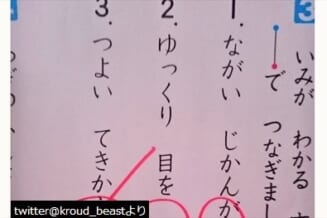 3 いみが わかる
で つなぎまし
1. ながい じかんが
2. ゆっくり 目を
3. つよい てきか
twitter@kroud_beastより